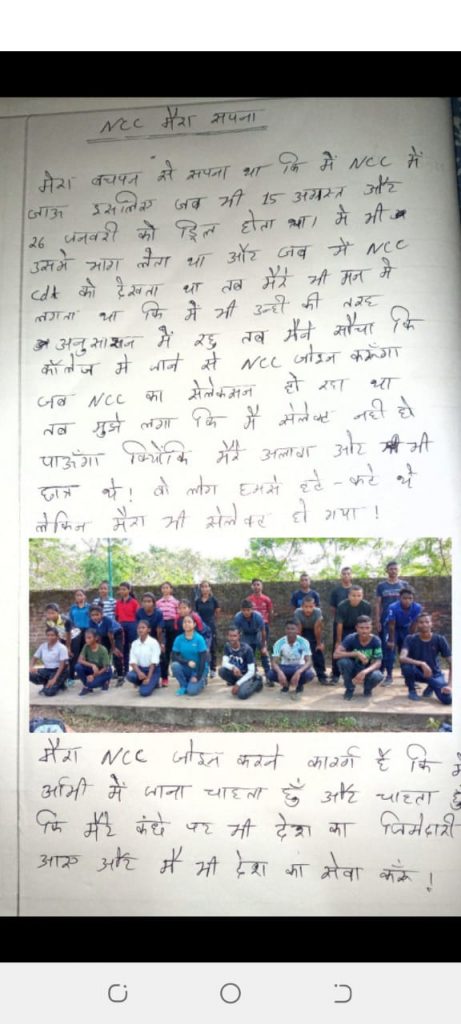 NCC मेरा सपना
मेरा बचपन से सपना था कि मैं NCC में
जाऊ इसलिए जब भी 15 अगस्त और
26 जनवरी को ड्रिल होता था। मे भी
उसमे भाग लेता था और जब मे NCC
cdt को देखता था तब मेरे भी मन मे
लगता था कि मे भी उन्ही की तरह
अनुसासन में रहु तब मैने सौचा कि
कॉलेज मे जाने से NCC जोइन करूँगा
जब NCC का सेलेकसन हो रहा था
तब मुझे लगा कि मै सेलेक्ट नही हो
पाऊँगा क्योंकि मेरे अलावा ओर भी
छात्र थे! वो लोग हमसे हटे-कटे थे
लेकिन मेरा भी सेलेक्ट हो गया!
मेरा NCC जोइन करने कारर्ण है कि मे
आर्मी में जाना चाहता हुँ और चाहता हुँ
कि मेरे कंधे पर भी देश का जिमेदारी
आए और मै भी देश का सेवा करू!